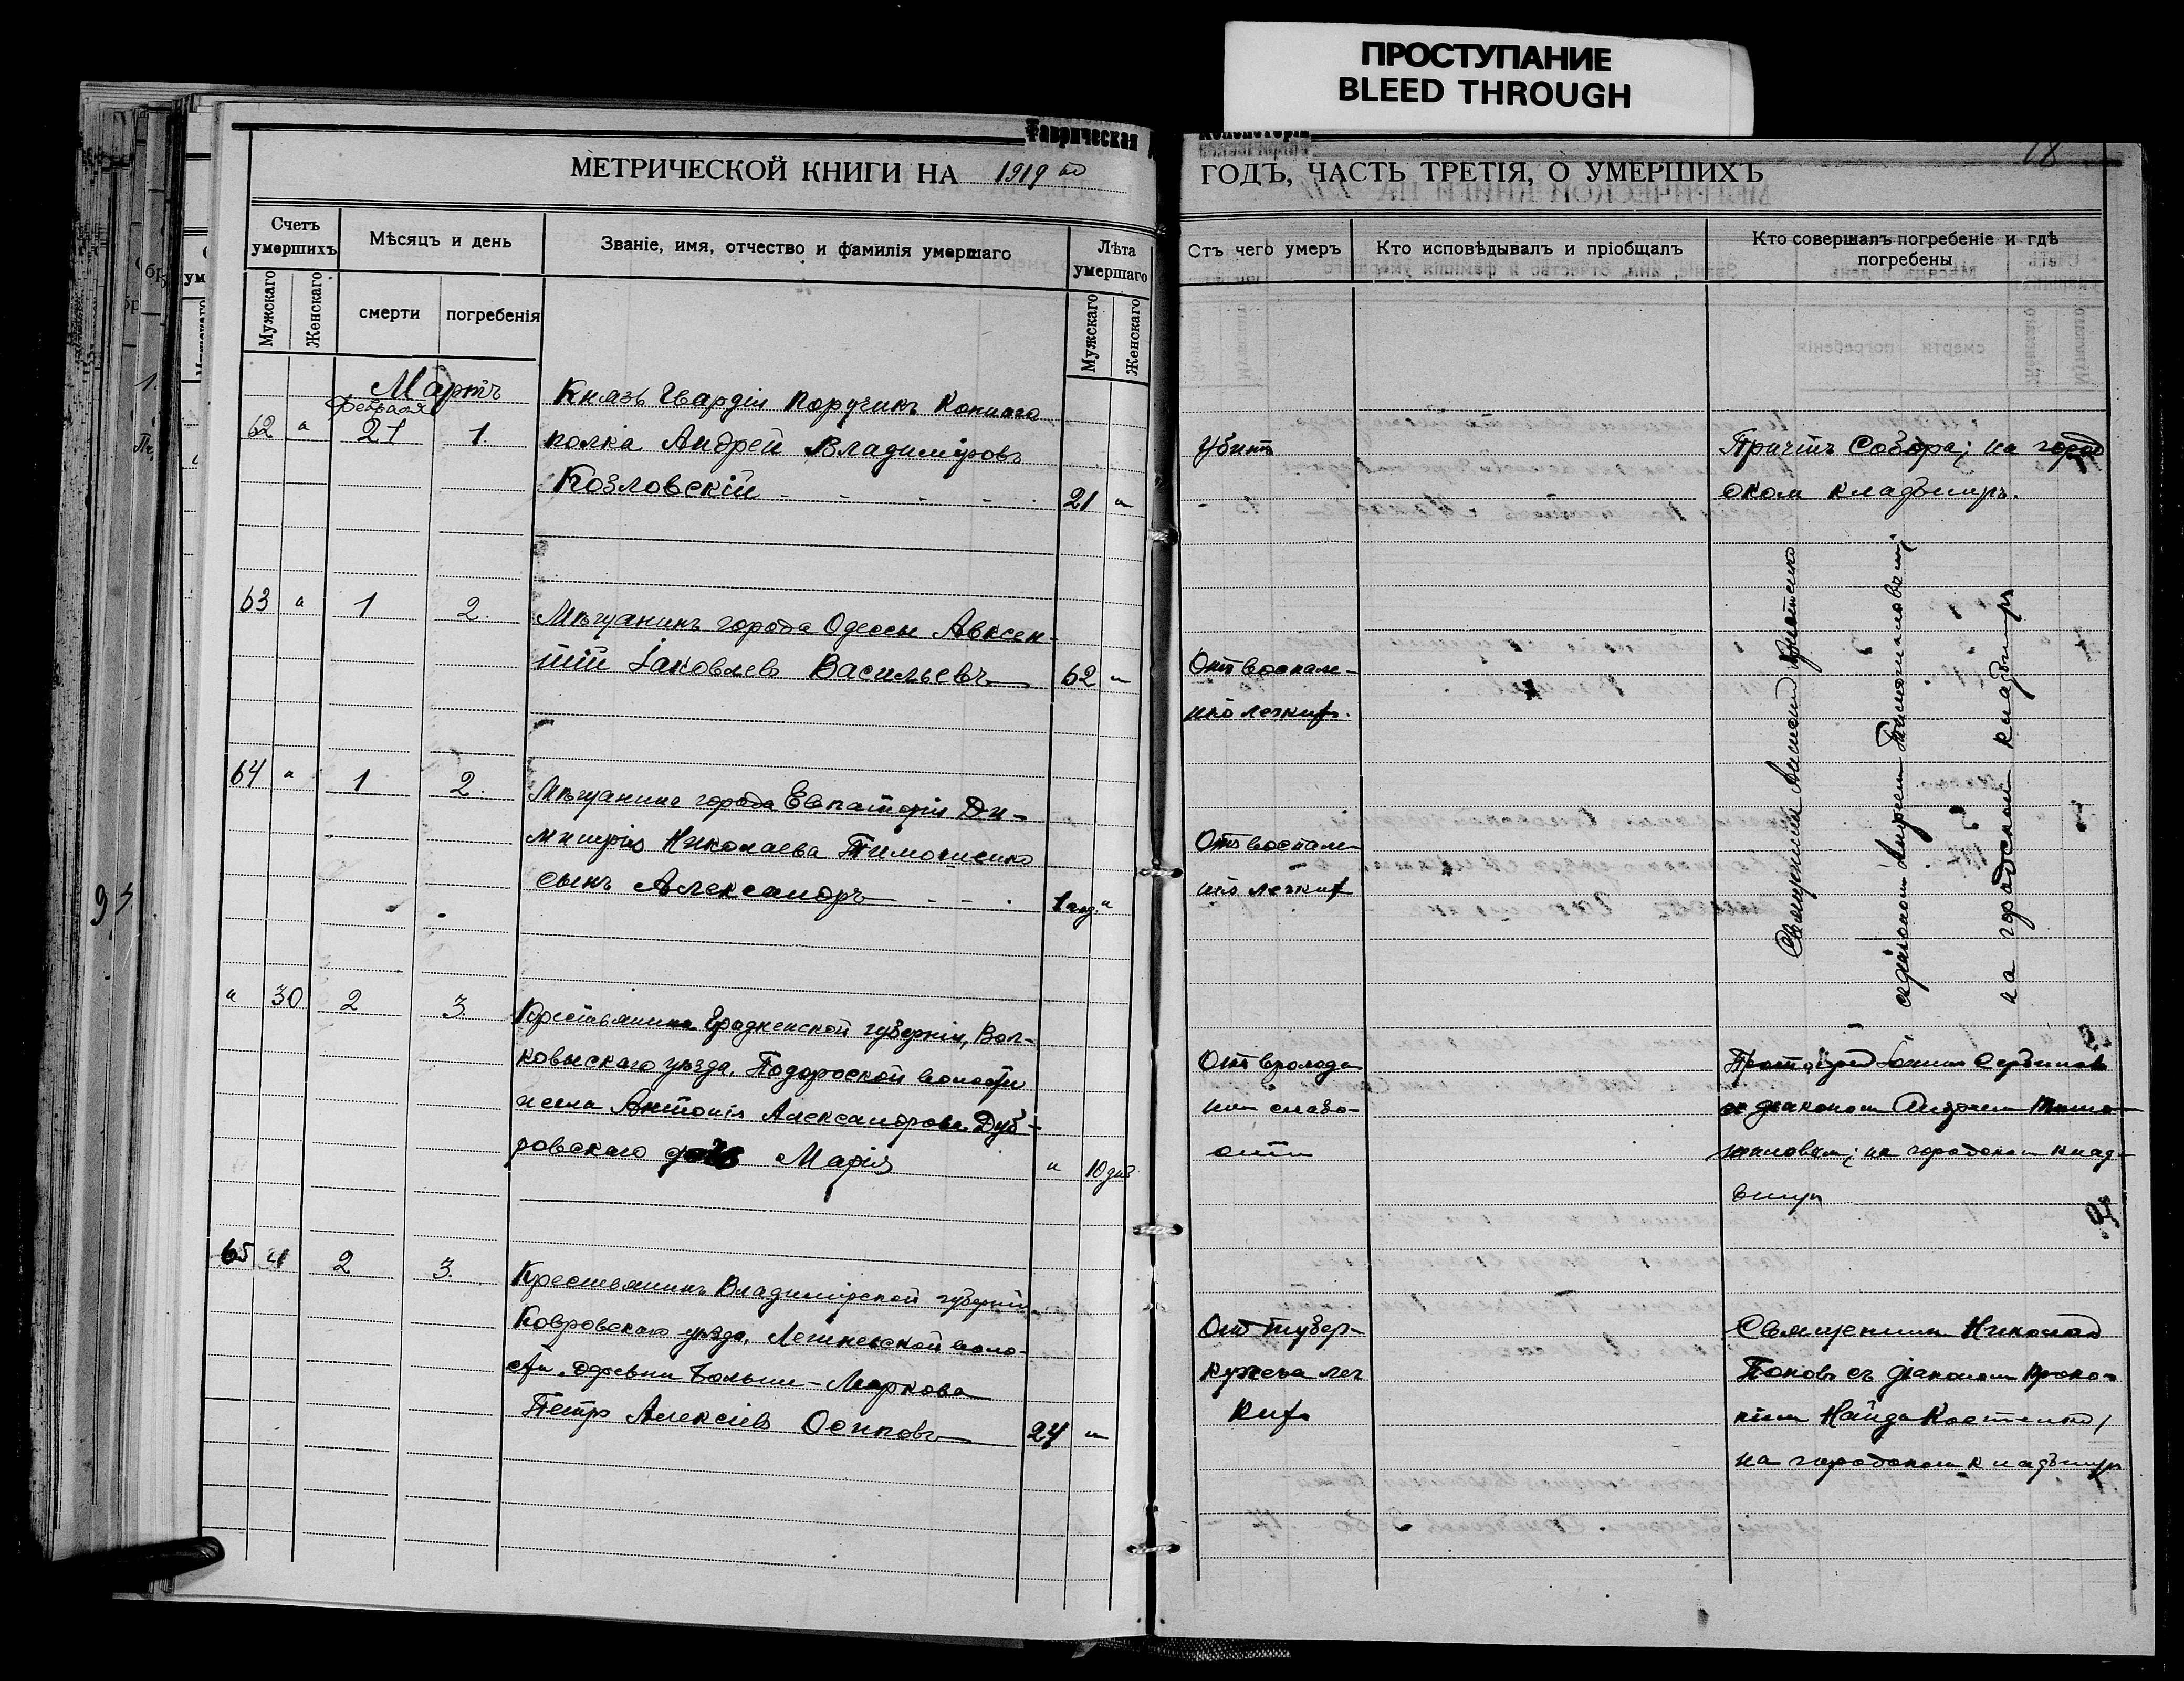 ПРОСТУПАНИЕ
BLEED THROUGH
Таврическая
18
МЕТРИЧЕСКОЙ КНИГИ НА 1919 ГОДЪ, ЧАСТЬ ТРЕТІЯ, О УМЕРШИХЪ
Счетъ умершихъ
Мужскаго
Женскаго
Мѣсяцъ и день
смерти
погребенія
Званіе, имя, отчество и фамилія умершаго
Лѣта умершаго
Мужскаго
Женскаго
Отъ чего умеръ
Кто исповѣдывалъ и пріобщалъ
Кто совершалъ погребеніе и гдѣ
погребены
Мартъ
Февраля
62 " 21 1
Князь Гвардіи Поручикъ Коннаго
полка Андрей Владиміровъ
Козловскій 21 "
Убитъ
Причтъ Собора; на город
скомъ кладбищѣ.
63 " 1 2.
Мѣщанинъ города Одессы Авксен-
тій Іаковлевъ Васильевъ 62 "
Отъ воспале-
нія легкихъ.
64 " 1 2.
Мѣщанина города Евпаторіи Ди-
митрія Николаева Тимошенко
сынъ Александръ 1 год. "
Отъ воспале
нія легкихъ
Священникъ Алексій
съ діакономъ Андреемъ
на городскомъ кладбищѣ
" 30 2 3.
Крестьянина Гродненской губерніи, Вол-
ковыскаго уѣзда, Подороской волости
села Антонія Александрова Дуб-
ровскаго дочь Марія " 10 дн
Отъ врожден
ной слабо-
сти
Протоіерей Іоаннъ Сербиновъ
съ діакономъ Андреемъ
на городскомъ клад-
бищѣ
65 " 2 3.
Крестьянинъ Владимірской губерніи
Ковровскаго уѣзда, воло-
сти, деревни Больши-Маркова
Петръ Алексіевъ Осиповъ 24 "
Отъ тубер-
кулеза лег
кихъ
Священникъ Николай
Поповъ съ діакономъ Проко-
піемъ Найда Костенко,
на городскомъ кладбищѣ